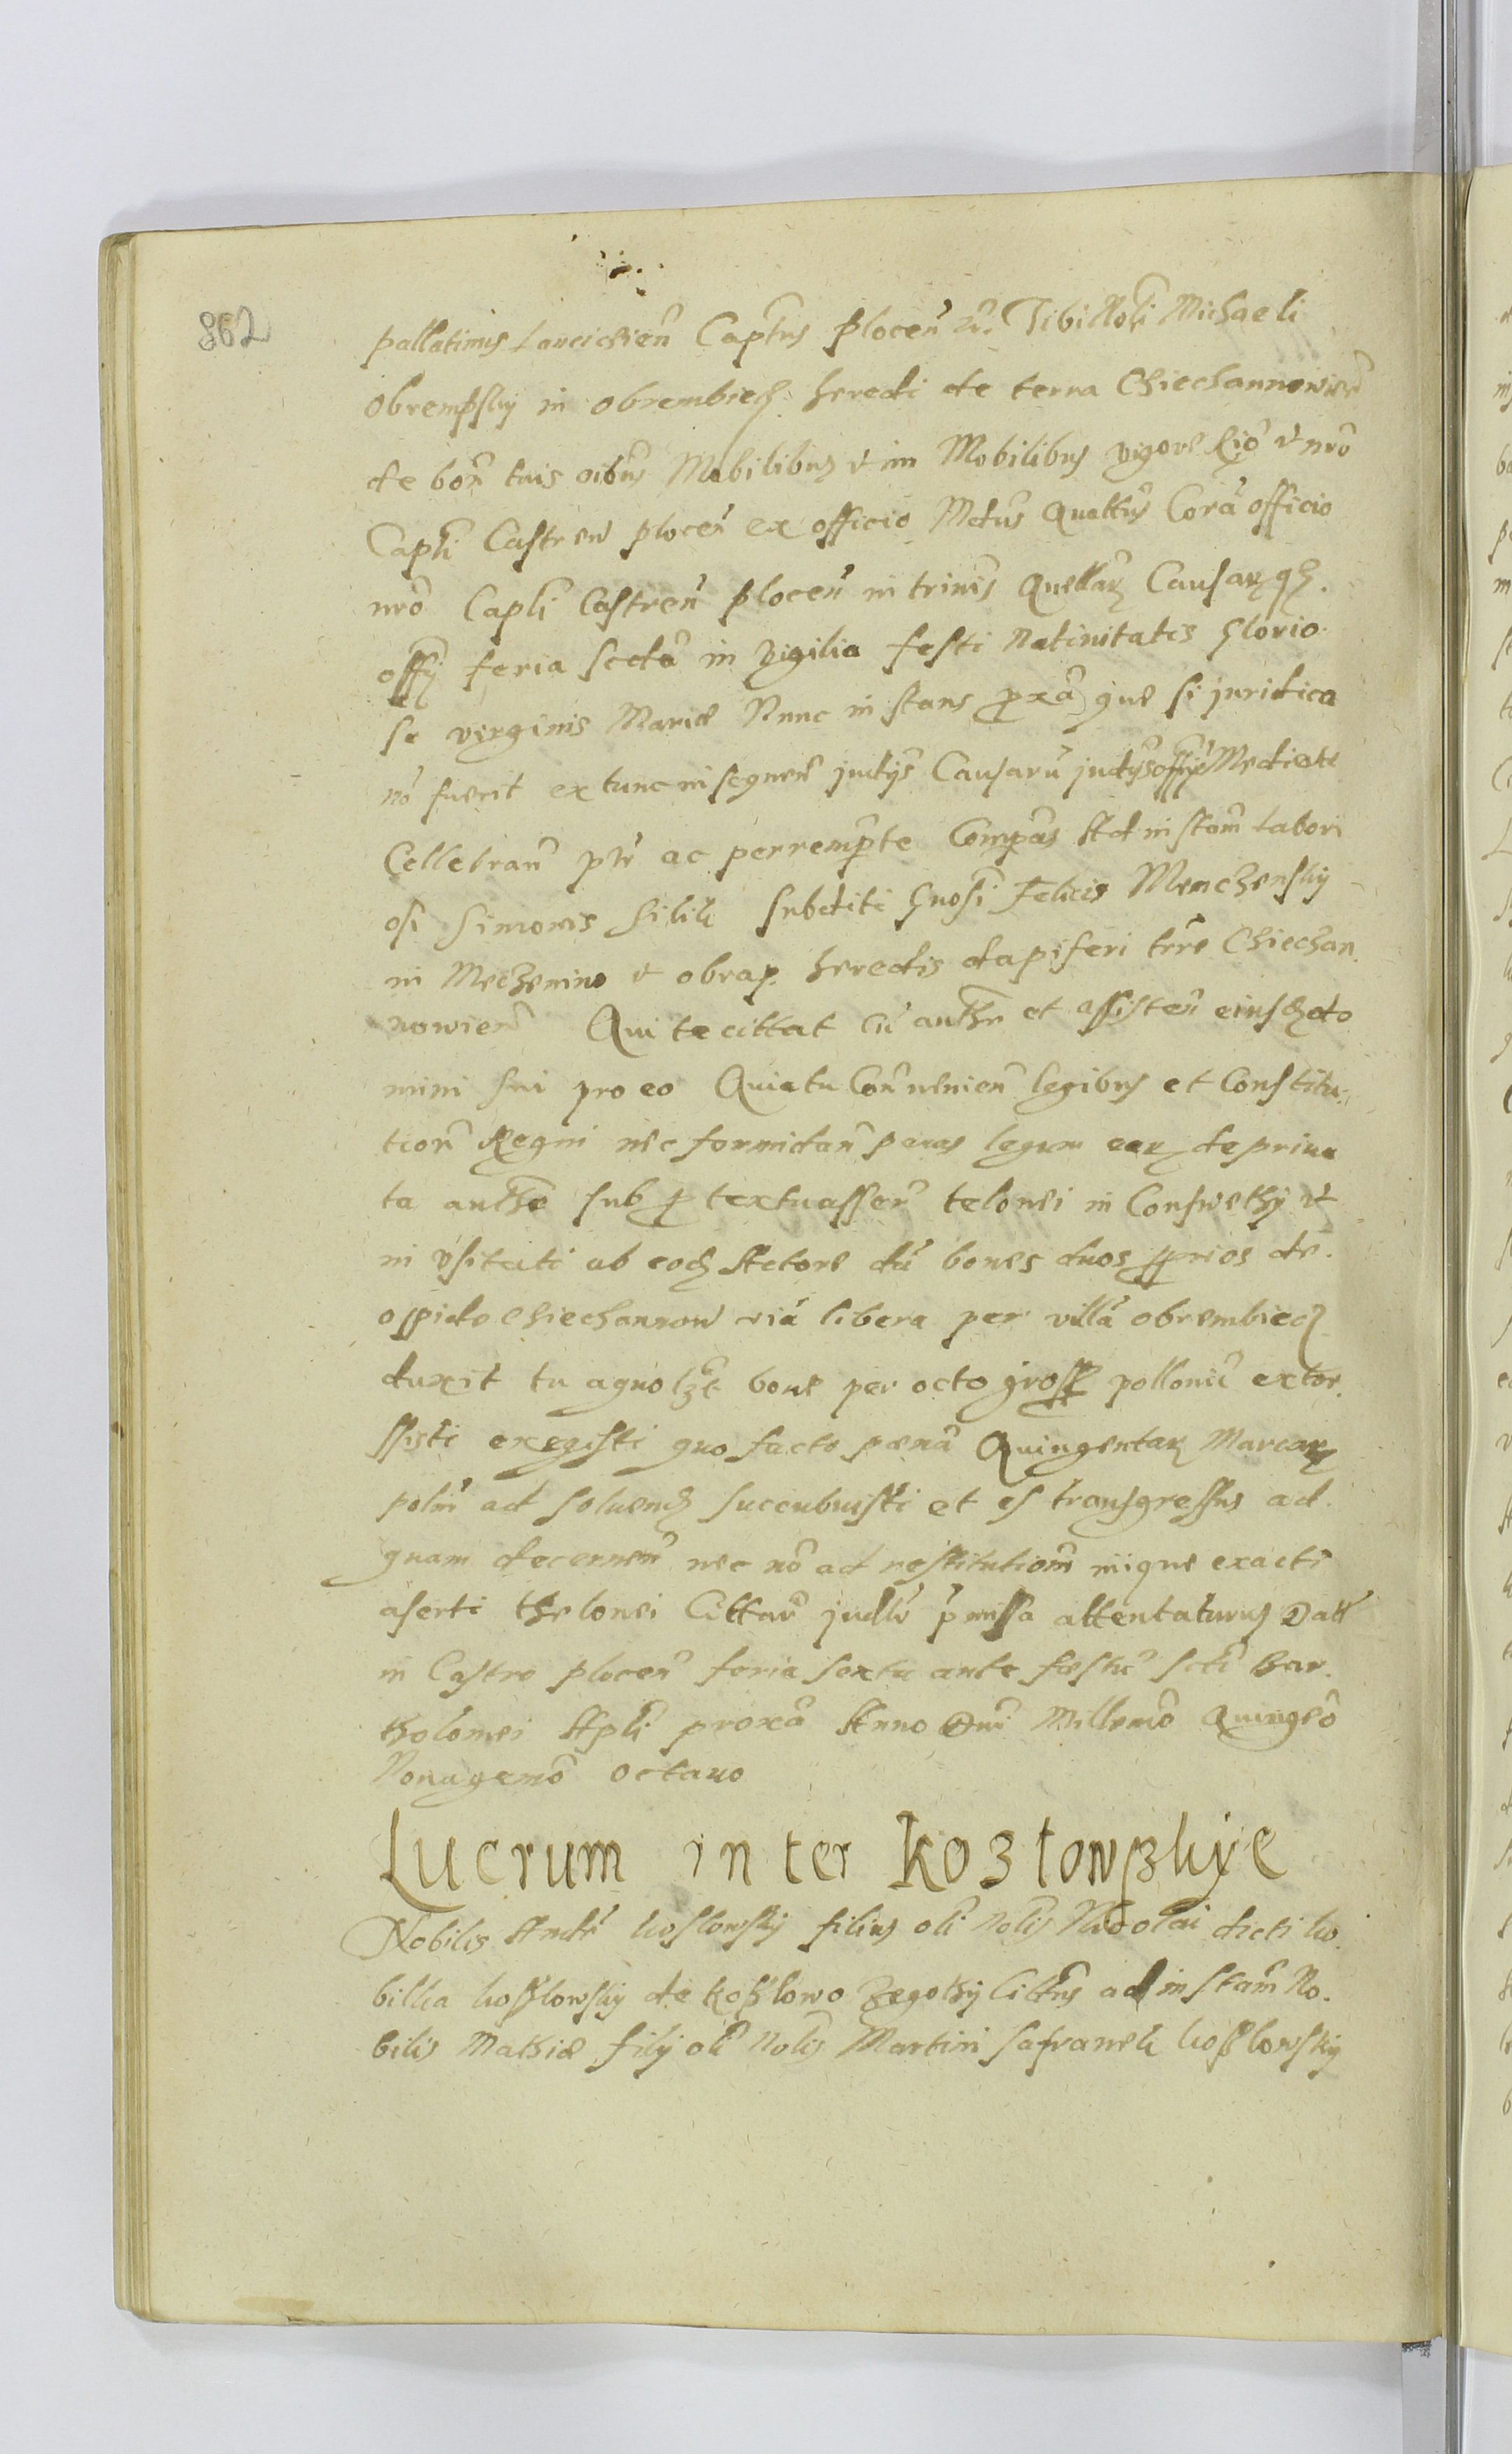 862
pallatinus Lancicien Captus Plocen N. Tibi Nobli Michaeli
Obrempsky in Obrembiech heredi de terra Chiechannowien
de bon tuis oibus Mobilibus et in Mobilibus vigore Rio et nro
Capli Castren plocen ex officio Metus Quattus Corã officio
nro Capli Castren Plocen in trinis Quellar Causar qz.
offy feria scda in vigilia festi Natiuitatis Glorio
se virginis Mariæ Nunc in stans pxã que si juridica
nõ fuerit ex tunc in sequen judys Causarũ judys offy Mediate
Cellebran ptr ac perrempte Compas Ad in stam Labori
osi Simonis subditi Gnosi Felicis Menchensky
in Mechenino et obrap. heredis dapiferi trre Chiechan
nowien Qui te cittat cũ authe et assisten eiusdz do
mini sui pro eo Quia tu Con uenien legibus et Constitu
tion Regni nec formidan penas legum ear de priua
ta authe sub p textu asser telonei in Conswethy et
in vsitati ab eodz Actore dũ boues duos pprios de
oppido Chiechannow viã libera per villã obrembiech
duxit tu a quolzt boue per octo gross polloni extor
sisti exegisti quo facto penã Quingentar Marcar
poln ad soluendz succubuisti et es transgressus ad
quam decernen nec nõ ad restitutiom inique exacti
aserti thelonei Cittar judlr pmissa attentaturus Datt
in Castro plocen feria sexta ante festũ scti Bar
tholomei Apli proxã Anno Dni Millemo Quingeo
Nonagemo octauo
Lucrum in ter Kozłowszkye
Nobilis Andr koslowsky filius oli Nolis Nicolai dicti ko
billka koszlowsky de Koszlowo Zegothy Cittus ad in stam No
bilis Mathiæ filij oli Nolis Martini safranek koszlowsky